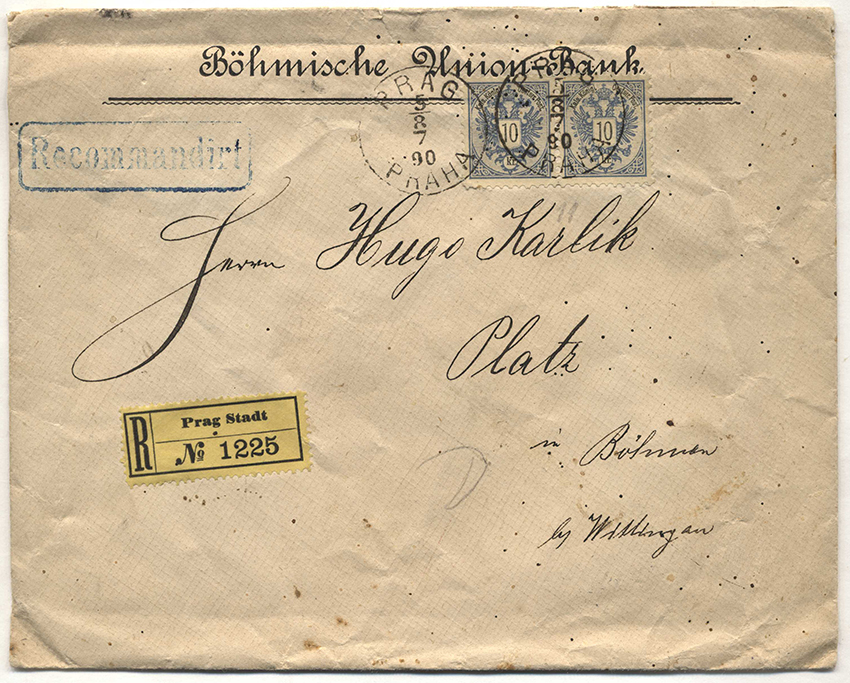 Böhmische Union-Bank.
PRAG
5
8
7
90
PRAHA
PRAG
5
8
7
90
PRAHA
10
10
Recommandirt
Herrn Hugo Karlik
Platz
in Böhmen
by Wittingau
R
Prag Stadt
№ 1225